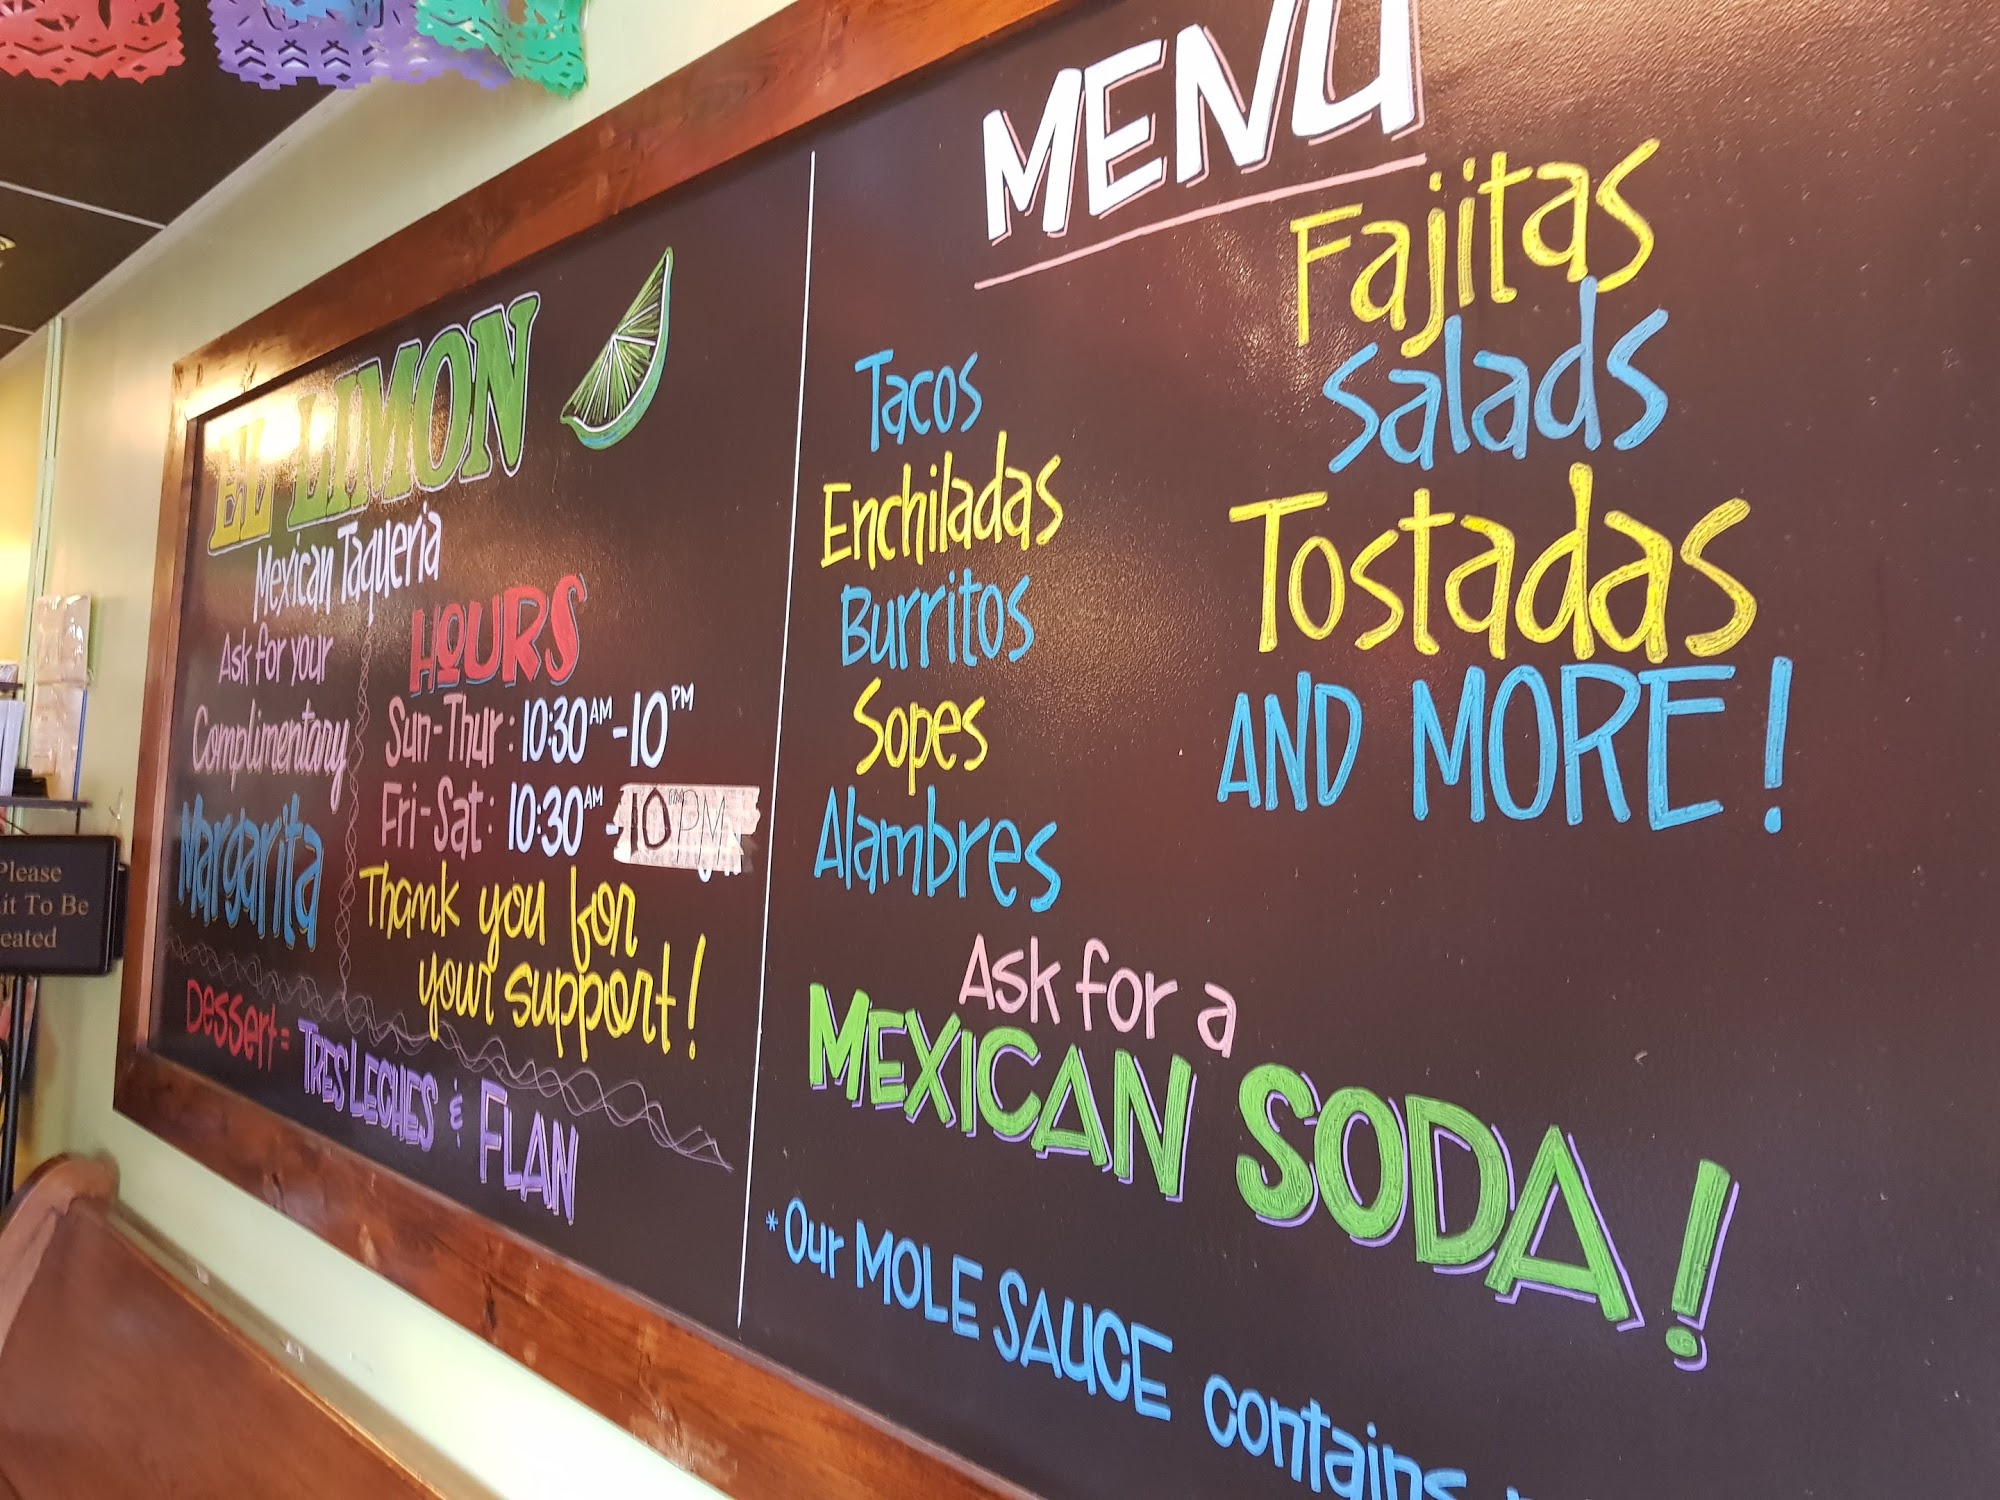 EL LIMON
Mexican Taqueria
Ask for your
Complimentary
Margarita
HOURS
Sun-Thur: 10:30AM-10PM
Fri-Sat: 10:30AM-10PM
Thank you for
your support!
Dessert= TRES LECHES & FLAN
MENU
Tacos
Enchiladas
Burritos
Sopes
Alambres
Fajitas
Salads
Tostadas
AND MORE!
Ask for a
MEXICAN SODA!
*Our MOLE SAUCE contains
Please
it To Be
eated